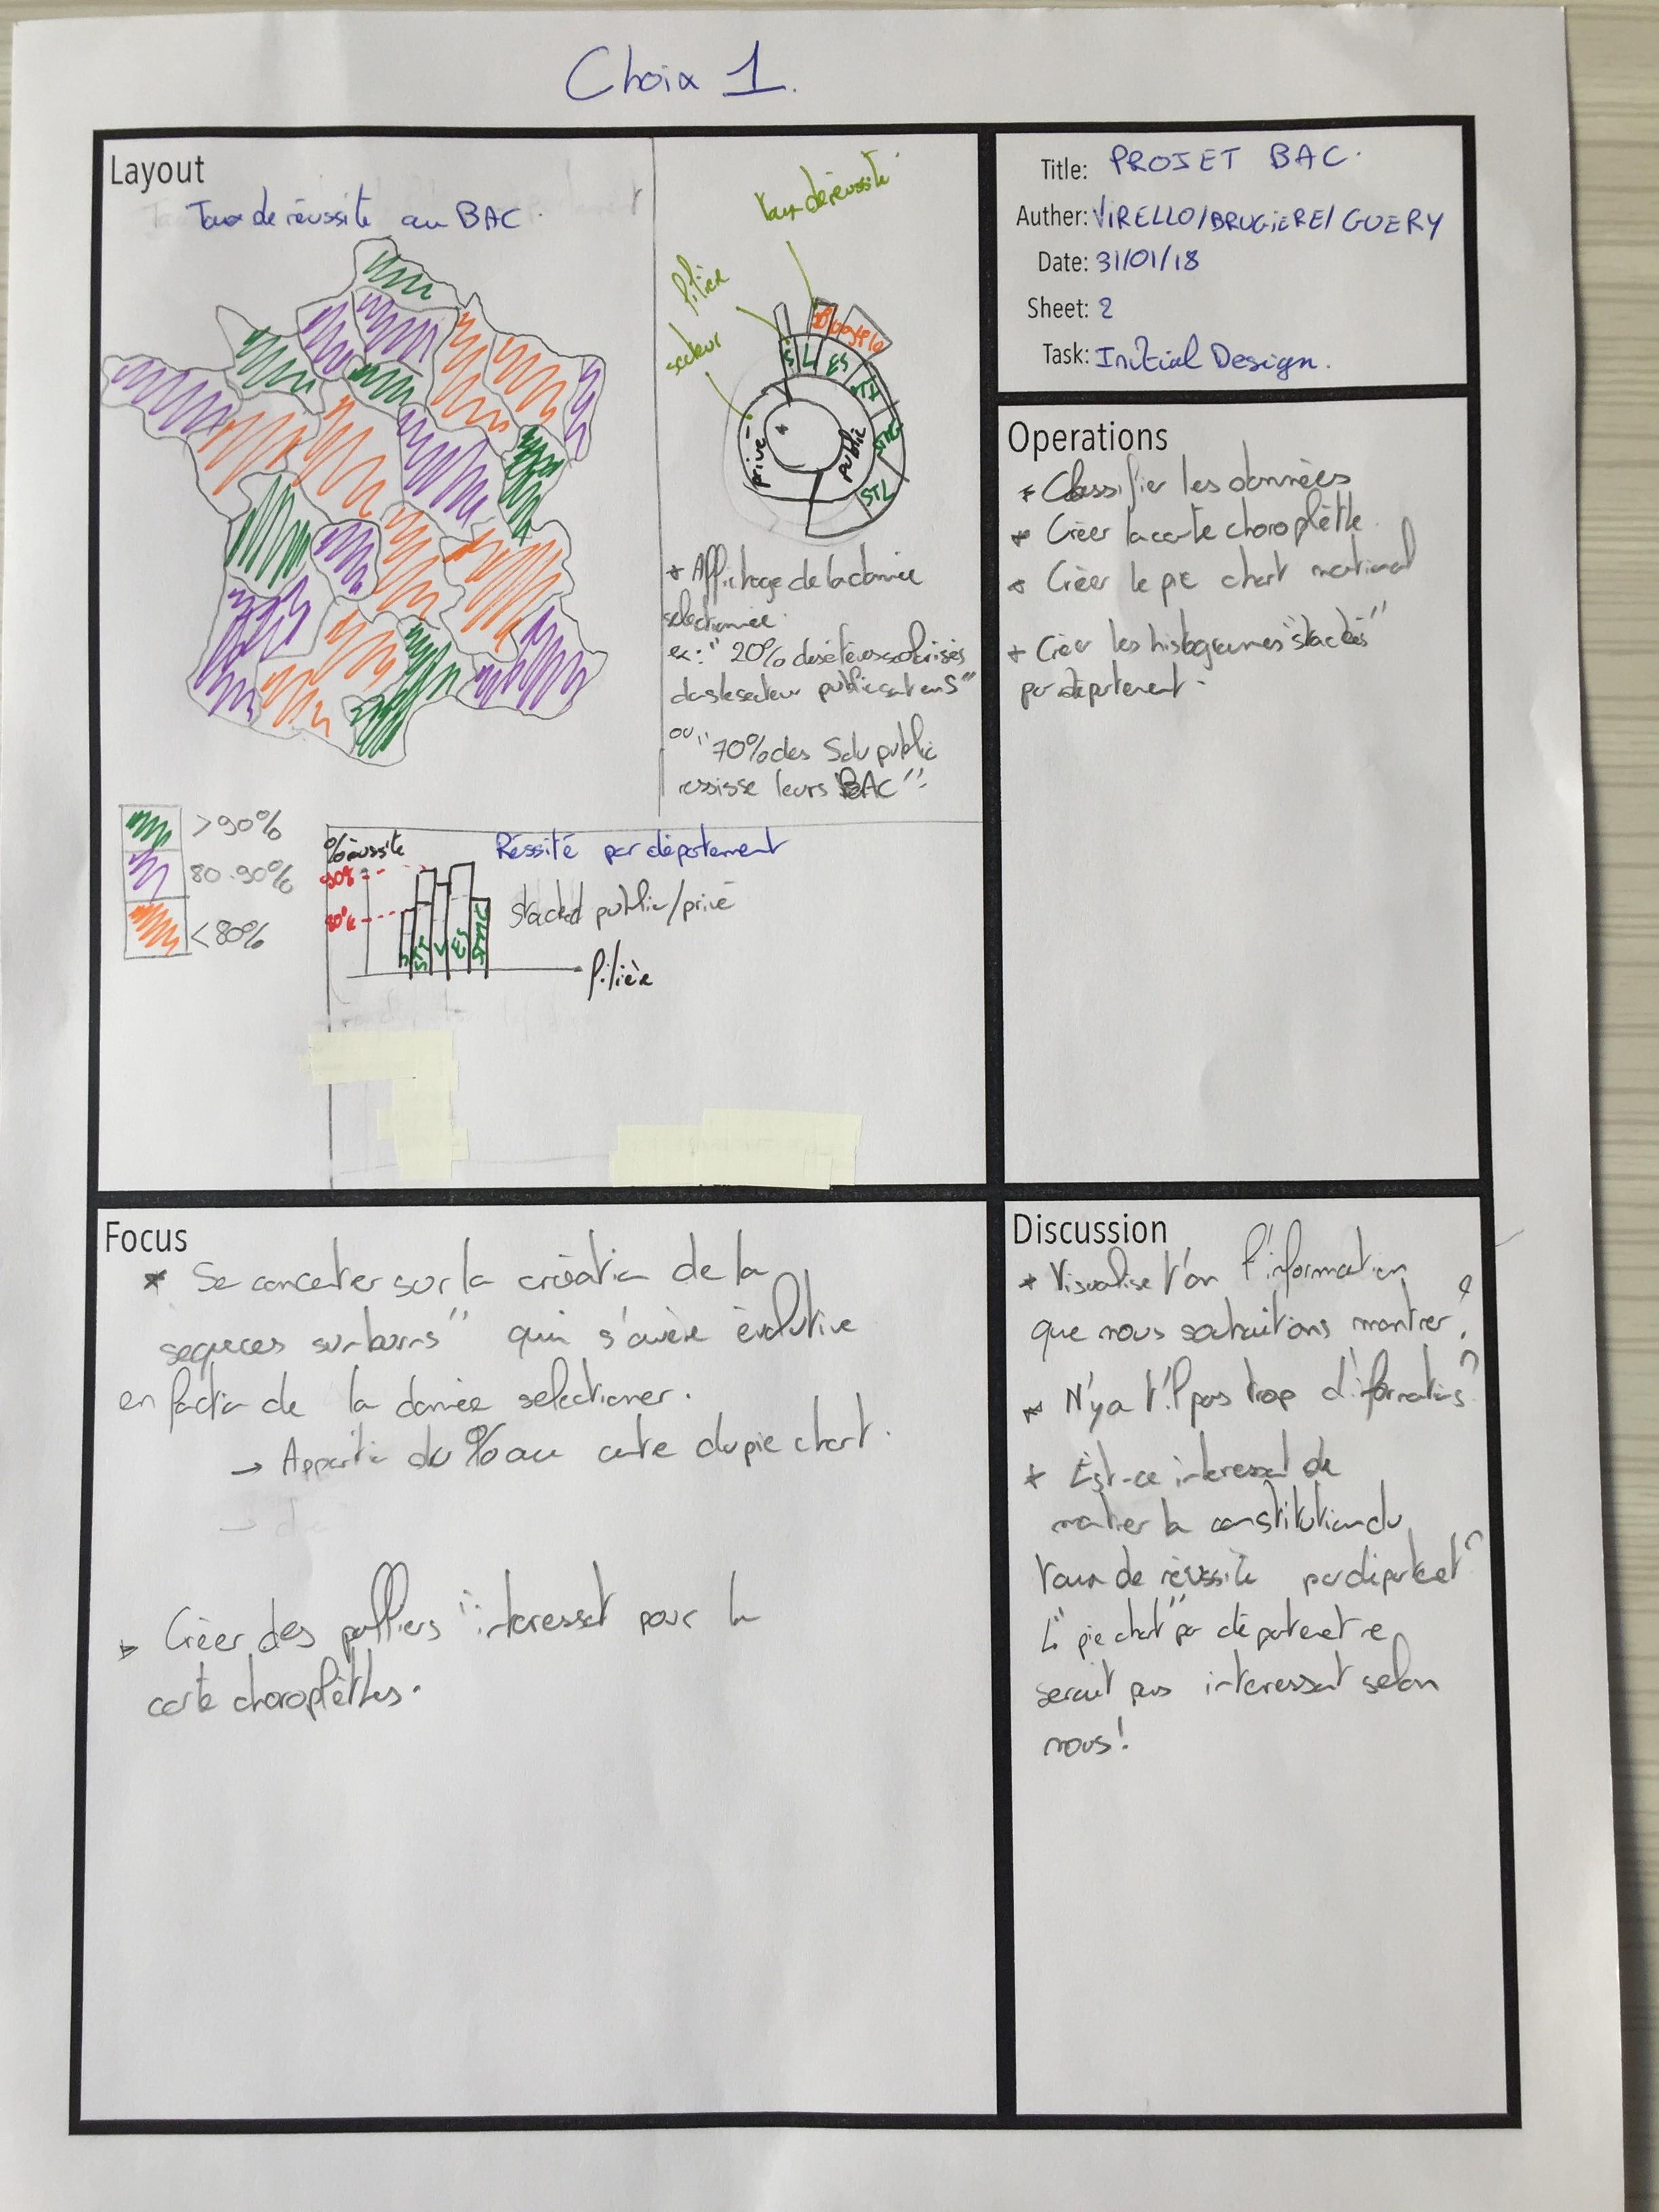 Choix 1.
Layout
Taux de réussite au BAC.
Taux de réussite
filière
secteur
S L ES STI STMG STL
privé public
* Affichage de la donnée
selectionnée.
ex: "20% des élèves scolarisés
dans le secteur public sont en S"
ou "70% des S du public
ressisse leurs BAC"
>90%
80-90%
<80%
% réussite
Réssité par département
90%
80%
stacked public/privé
filière
Title: PROJET BAC.
Auther: VIRELLO/BRUGIERE/GUERY
Date: 31/01/18
Sheet: 2
Task: Initial Design.
Operations
* Classifier les données
* Créer la carte choroplèthe.
* Créer le pie chart national
* Créer les histogrammes "stackés"
par département.
Focus
* Se concenter sur la création de la
"sequeces sunburns" qui s'avère évolutive
en faction de la donnée selectionner.
→ Apparition du % au centre du pie chart.
* Créer des palliers interessant pour la
carte choroplèthes.
Discussion
* Visualise t'on l'information
que nous souhaitions montrer ?
* N'y a t'il pas trop d'informations ?
* Est-ce interessant de
montrer la constitution du
taux de réussite par départemet ?
L "pie chart" par département ne
serait pas interessant selon
nous !